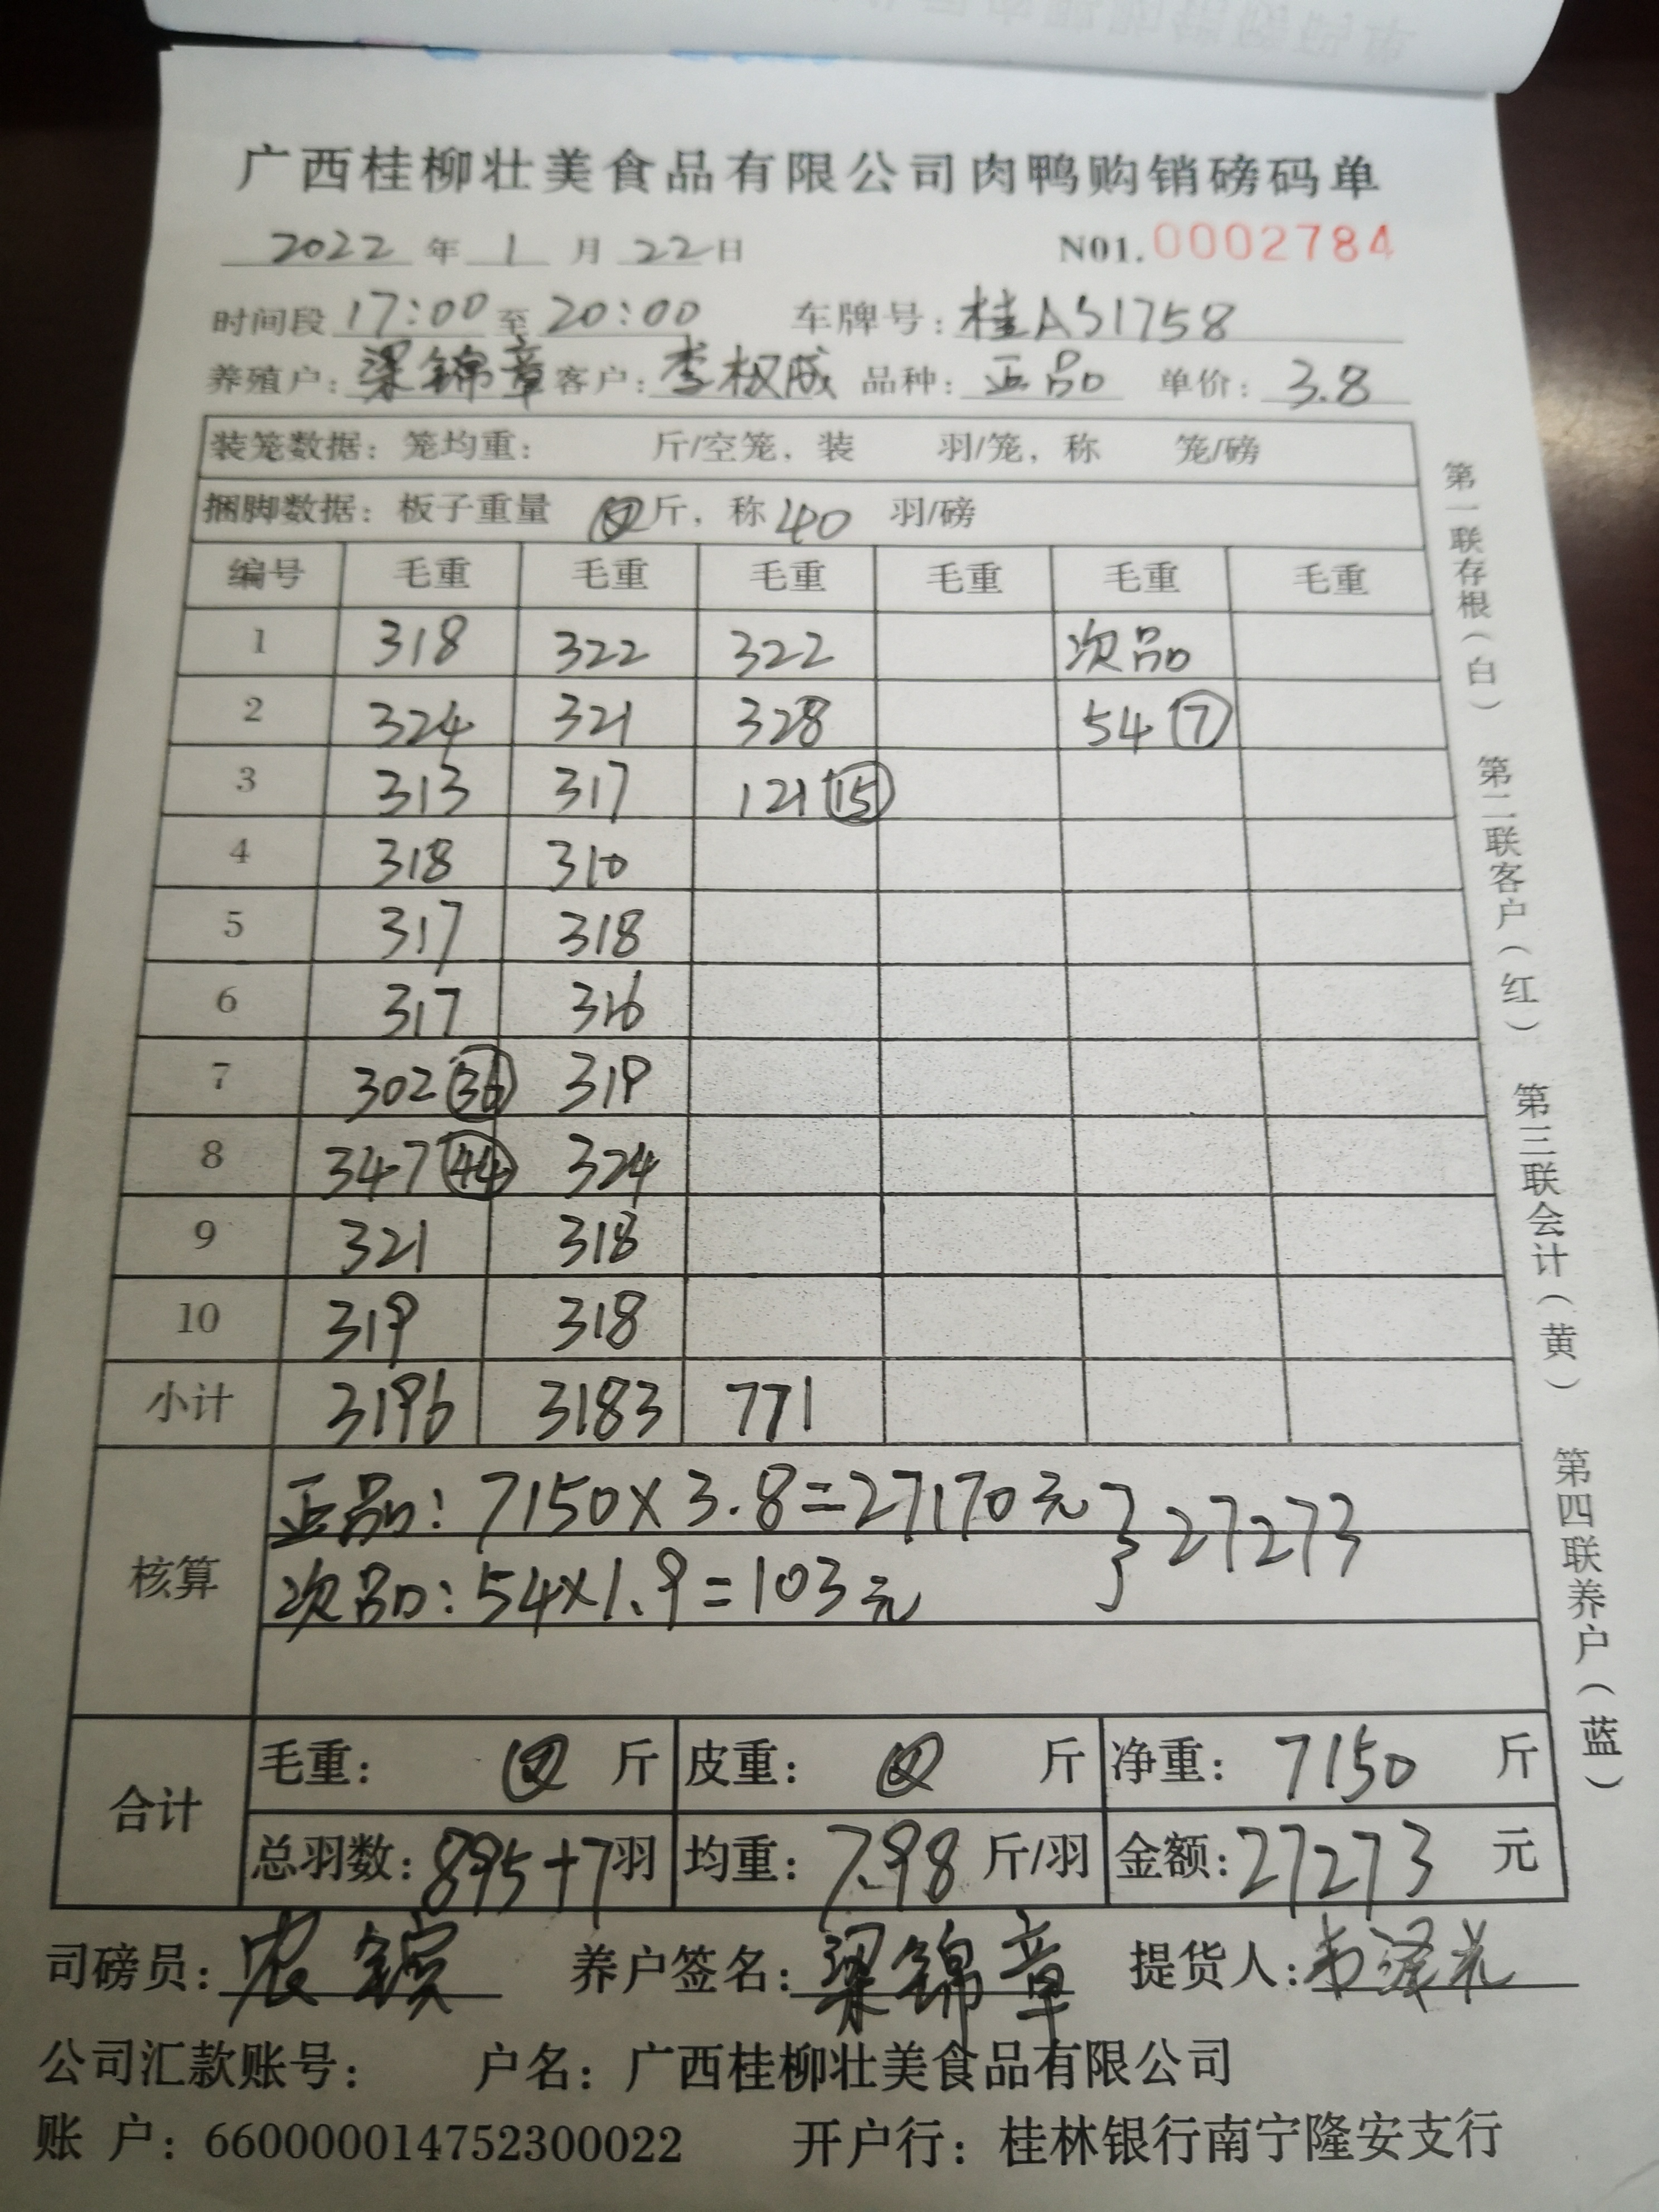 广西桂柳壮美食品有限公司肉鸭购销磅码单
2022年1月22日 N01.0002784
时间段17:00至20:00 车牌号:桂AS1758
养殖户:梁锦章 客户:李权成 品种:正品 单价:3.8
装笼数据:笼均重: 斤/空笼,装 羽/笼,称 笼/磅
捆脚数据:板子重量 斤,称40 羽/磅
编号 毛重 毛重 毛重 毛重 毛重 毛重
1 318 322 322 次品
2 324 321 328 54⑦
3 313 317 121⑮
4 318 310
5 317 318
6 317 316
7 302㊱ 319
8 347㊹ 324
9 321 318
10 319 318
小计 3196 3183 771
核算
正品:7150×3.8=27170元 } 27273
次品:54×1.9=103元
合计
毛重: 斤 皮重: 斤 净重:7150斤
总羽数:895+7羽 均重:7.98斤/羽 金额:27273元
司磅员:农 养户签名:梁锦章 提货人:
公司汇款账号: 户名:广西桂柳壮美食品有限公司
账 户:660000014752300022 开户行:桂林银行南宁隆安支行
第一联存根(白) 第二联客户(红) 第三联会计(黄) 第四联养户(蓝)